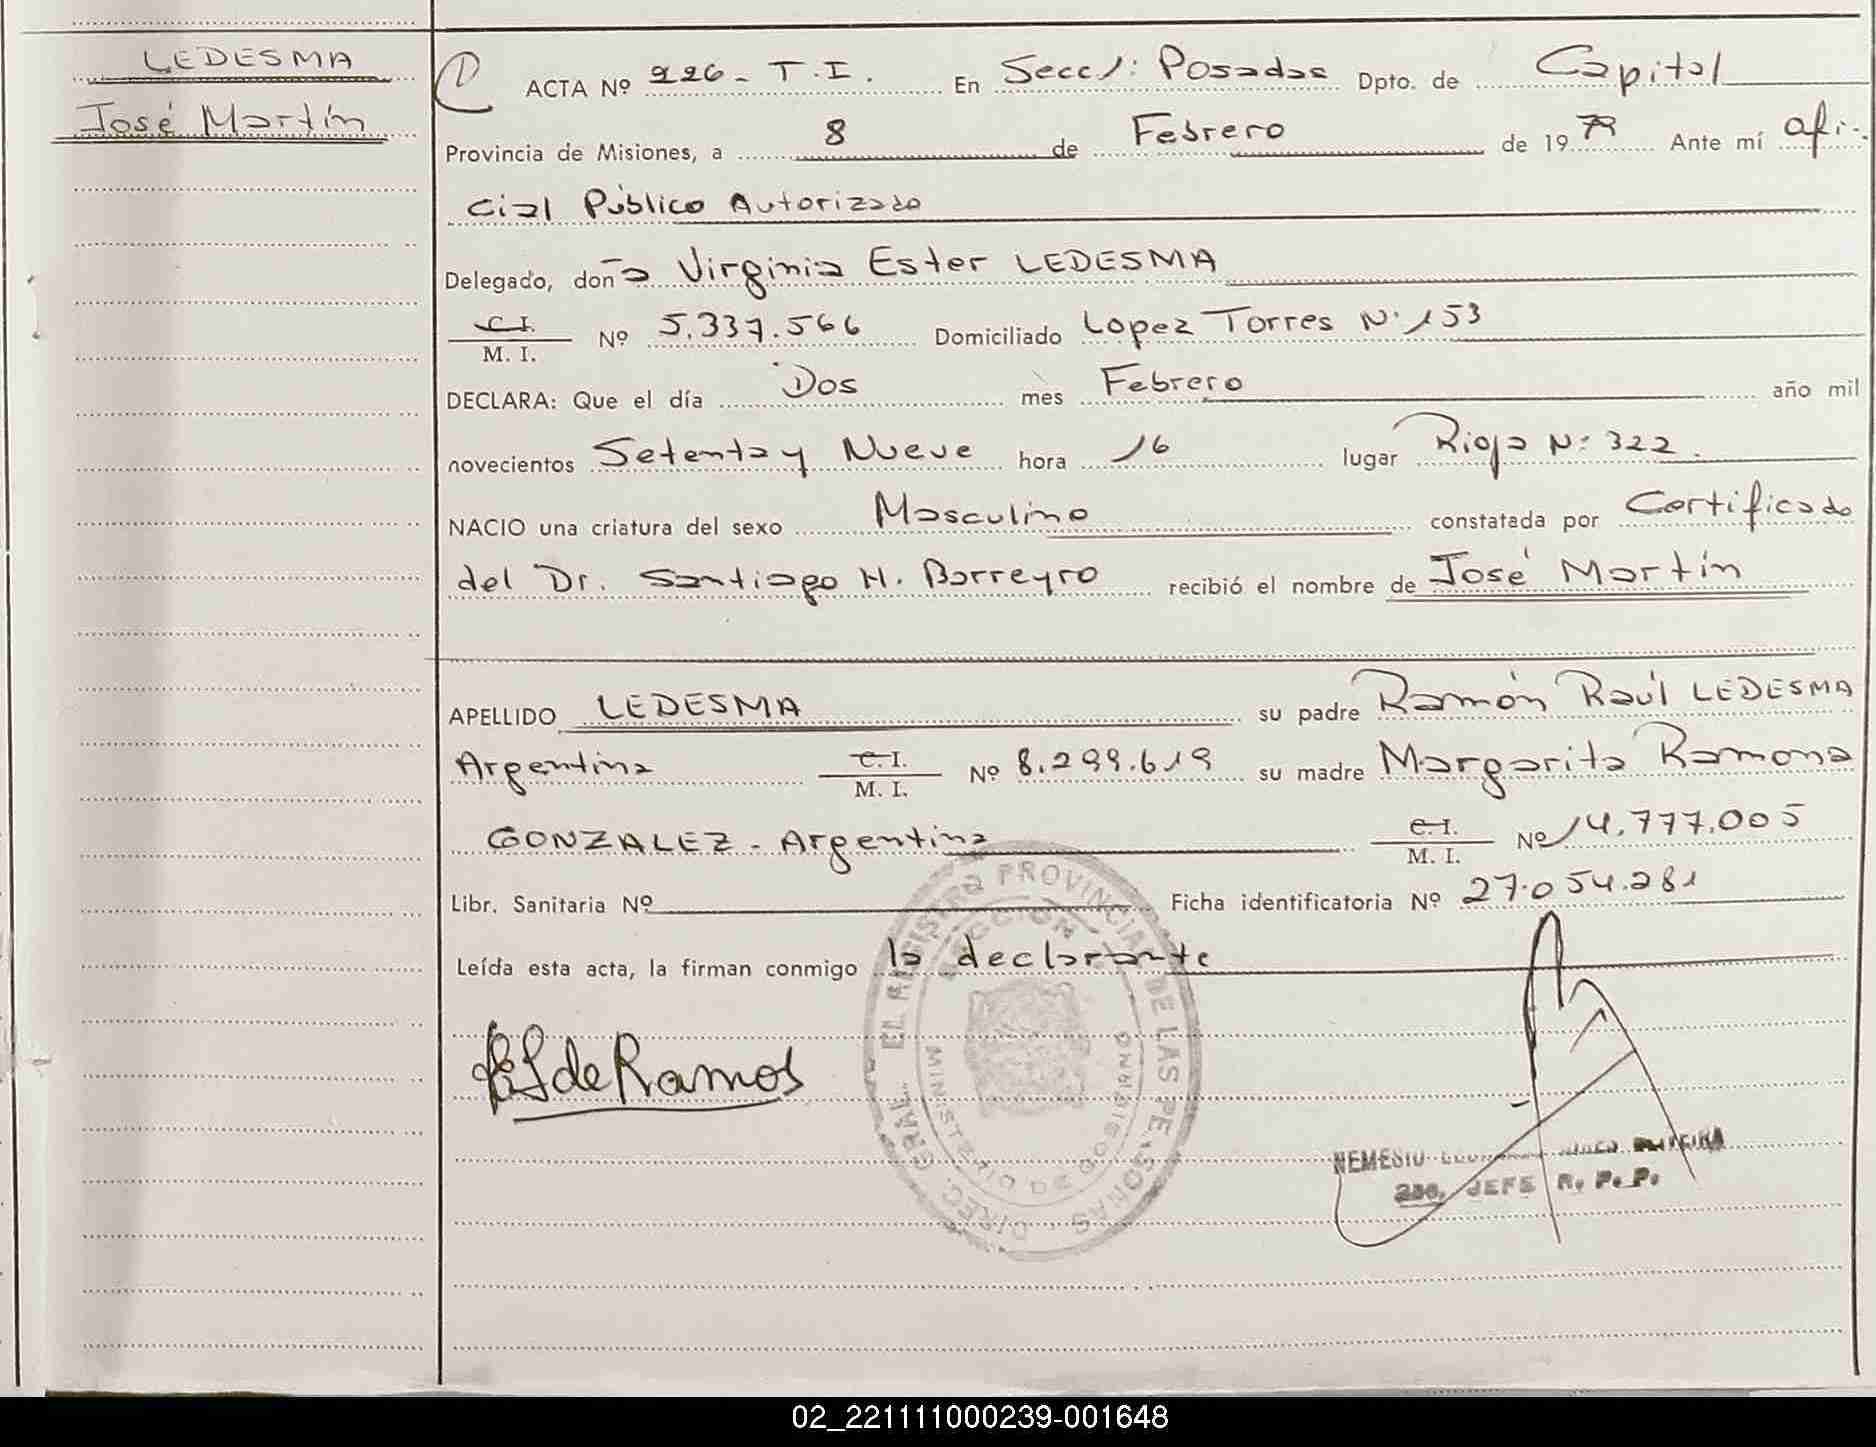 LEDESMA
José Martín
ACTA Nº 226- T.I. En Secc/: Posadas Dpto. de Capital
Provincia de Misiones, a 8 de Febrero de 1979 Ante mí ofi-
cial Público Autorizado
Delegado, doña Virginia Ester LEDESMA
C.I.
M. I. Nº 5.337.566 Domiciliado Lopez Torres N° 153
DECLARA: Que el día Dos mes Febrero año mil
novecientos Setenta y Nueve hora 16 lugar Rioja N: 322.
NACIO una criatura del sexo Masculino constatada por Certificado
del Dr. Santiago H. Barreyro recibió el nombre de José Martín
APELLIDO LEDESMA su padre Ramón Raúl LEDESMA
Argentina C.I. M. I. Nº 8.299.619 su madre Margarita Ramona
GONZALEZ - Argentina C.I. M. I. Nº 14.777.005
Libr. Sanitaria Nº Ficha identificatoria Nº 27.054.281
Leída esta acta, la firman conmigo la declarante
de Ramos
DIREC. GRAL. REGISTRO PROVINCIAL DE LAS PERSONAS
MINISTERIO DE GOBIERNO
NEMESIO
2do. JEFE R. P. P.
02_221111000239-001648